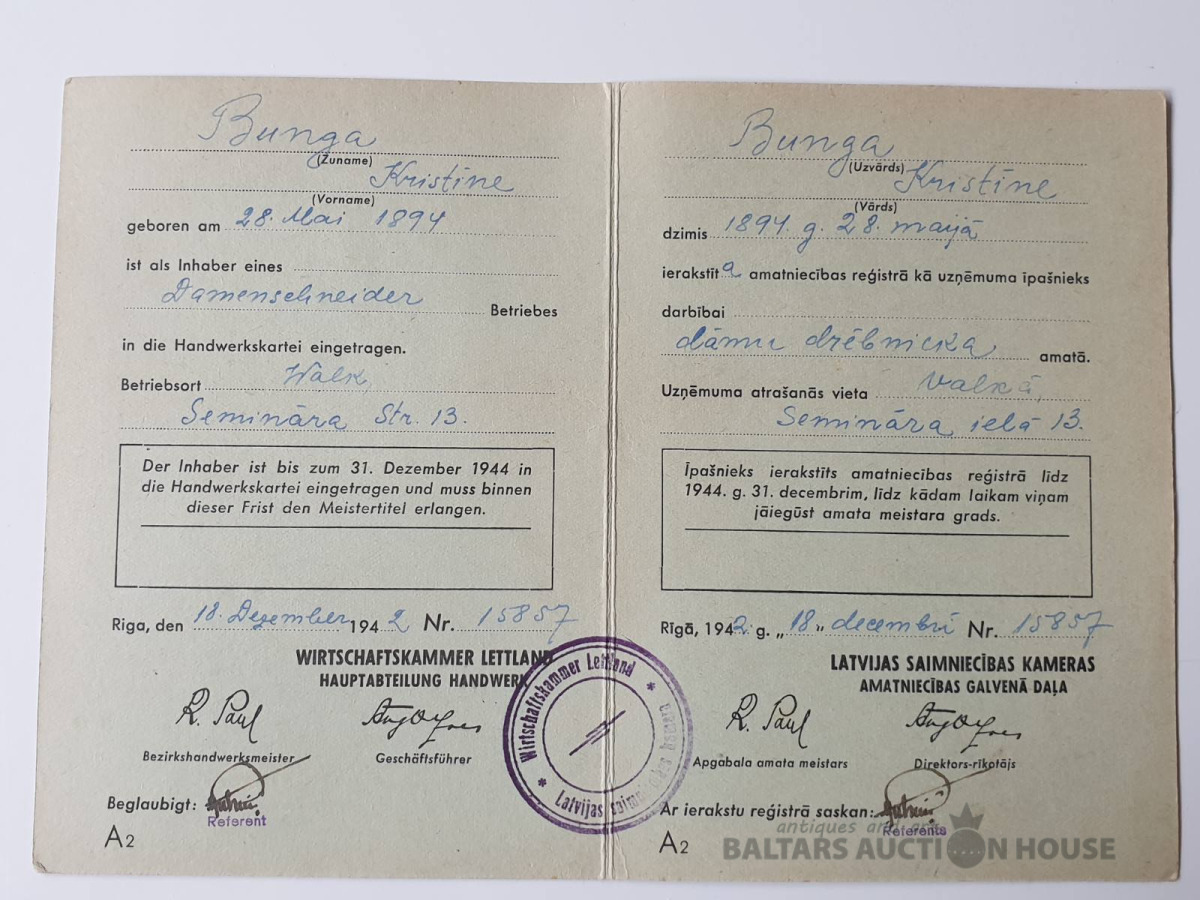 Bunga
(Zuname)
Kristīne
(Vorname)
geboren am 28. Mai 1894
ist als Inhaber eines
Damenschneider Betriebes
in die Handwerkskartei eingetragen.
Betriebsort Walk,
Semināra Str. 13.
Der Inhaber ist bis zum 31. Dezember 1944 in
die Handwerkskartei eingetragen und muss binnen
dieser Frist den Meistertitel erlangen.
Riga, den 18. Dezember 1942 Nr. 15857
WIRTSCHAFTSKAMMER LETTLAND
HAUPTABTEILUNG HANDWERK
R. Paul
Bezirkshandwerksmeister Geschäftsführer
Beglaubigt:
Referent
A2
Bunga
(Uzvārds)
Kristīne
(Vārds)
dzimis 1894. g. 28. maijā
ierakstīta amatniecības reģistrā kā uzņēmuma īpašnieks
darbībai
dāmu drēbnieka amatā.
Uzņēmuma atrašanās vieta Valkā,
Semināra ielā 13.
Īpašnieks ierakstīts amatniecības reģistrā līdz
1944. g. 31. decembrim, līdz kādam laikam viņam
jāiegūst amata meistara grads.
Rīgā, 1942. g. „18„ decembrī Nr. 15857
LATVIJAS SAIMNIECĪBAS KAMERAS
AMATNIECĪBAS GALVENĀ DAĻA
R. Paul
Apgabala amata meistars Direktors-rīkotājs
Ar ierakstu reģistrā saskan:
Referents
A2
Wirtschaftskammer Lettland
* Latvijas saimniecības kamera *
antiques and art
BALTARS AUCTION HOUSE